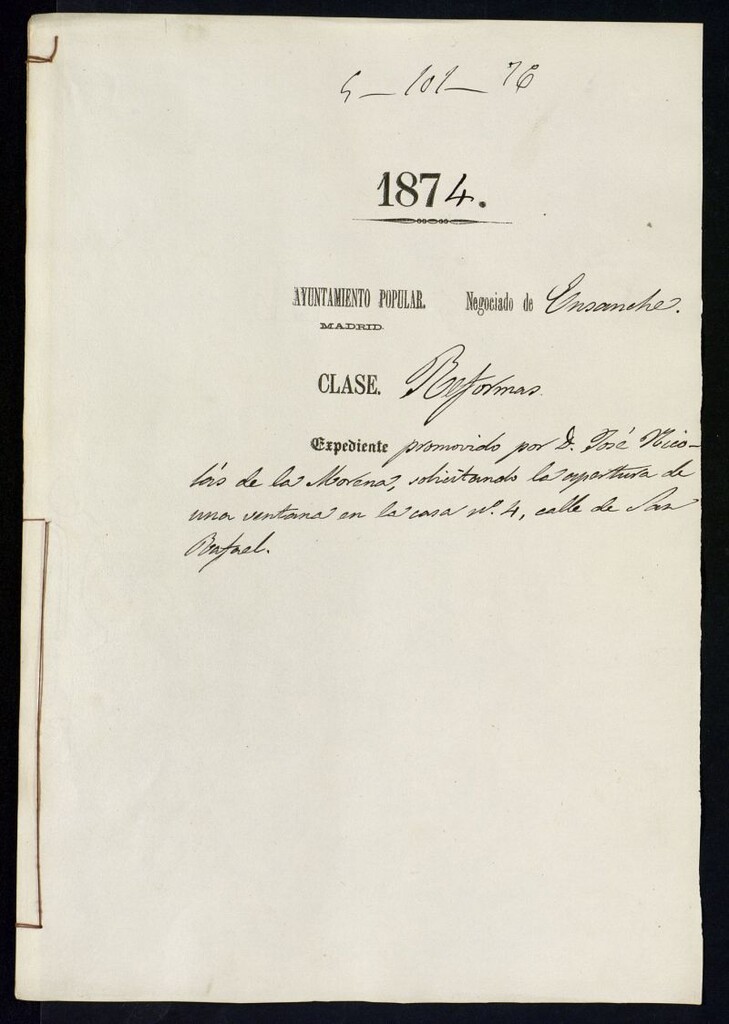 5 — 101 — 76
1874.
AYUNTAMIENTO POPULAR. Negociado de Ensanche.
MADRID.
CLASE. Reformas.
Expediente promovido por D. José Nico-
lás de la Morena, solicitando la apertura de
una ventana en la casa nº. 4, calle de San
Rafael.